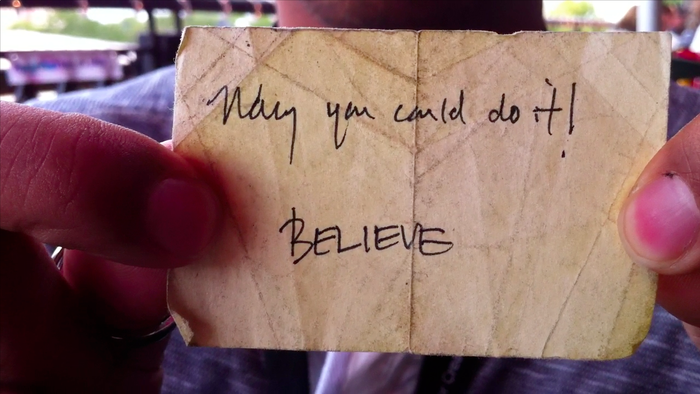 you could do it!
BELIEVE